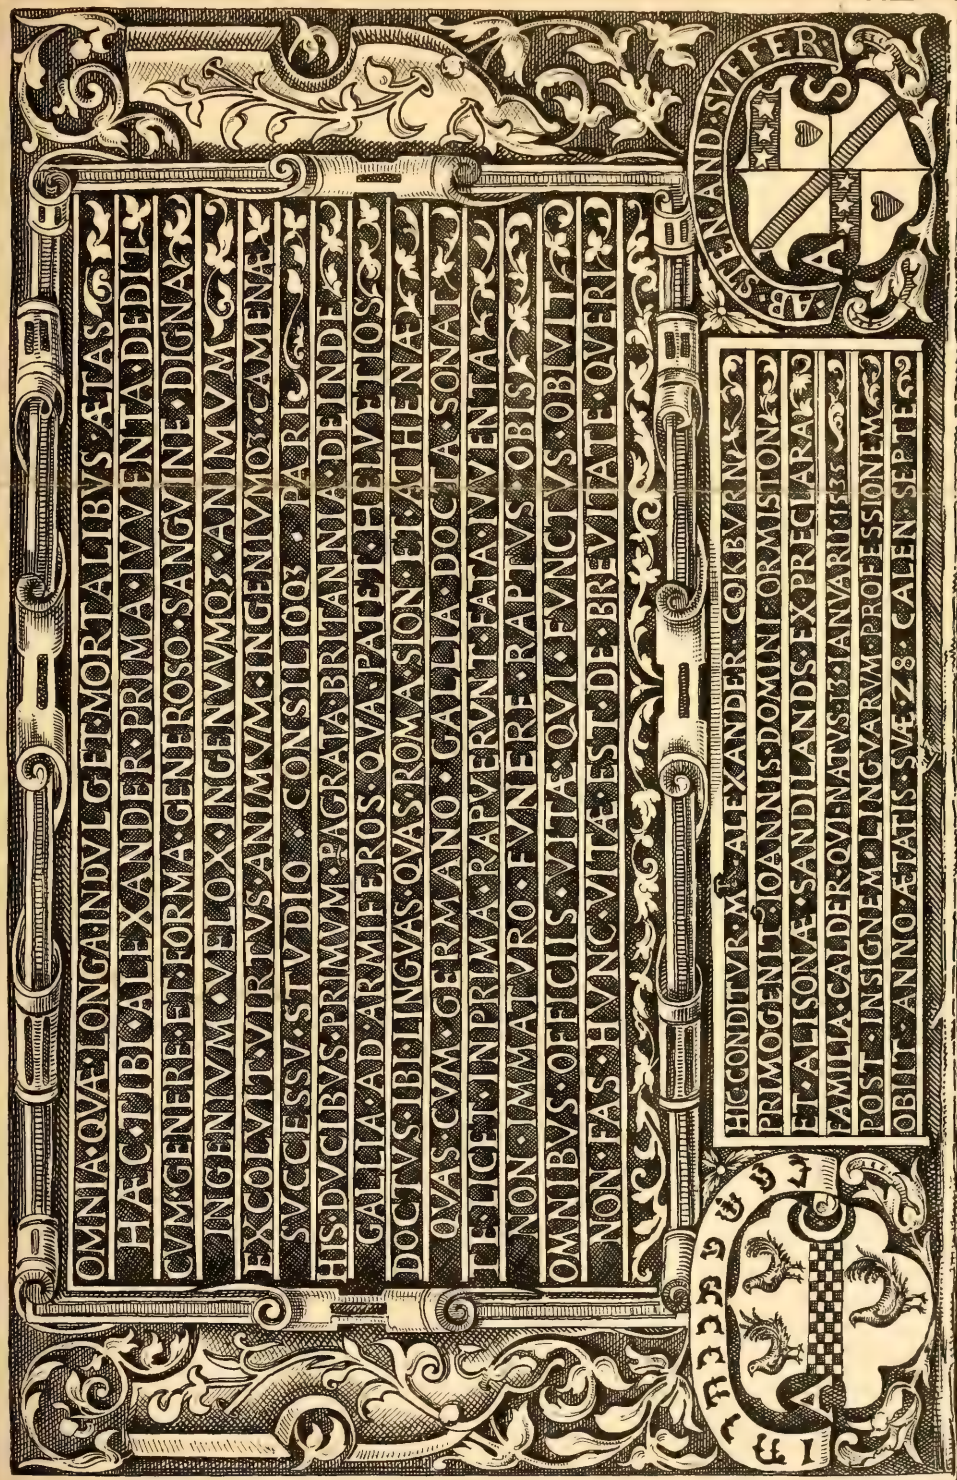 OMNIA·QVÆ·LONGA·INDVLGET·MORTALIBVS·ÆTAS
HÆC·TIBI·ALEXANDER·PRIMA·IVVENTA·DEDIT
CVM·GENERE·ET·FORMA·GENEROSO·SANGVINE·DIGNA
INGENIVM·VELOX·INGENVVMQꝫ·ANIMVM
EXCOLVIT·VIRTVS·ANIMVM·INGENIVMQꝫ·CAMENÆ
SVCCESSV·STVDIO·CONSILIOQꝫ·PARI
HIS·DVCIBVS·PRIMVM·ꝐAGRATA·BRITANNIA·DEINDE
GALLIA·AD·ARMIFEROS·QVA·PATET·HELVETIOS
DOCTVS·IBI·LINGVAS·QVAS·ROMA·SION·ET·ATHENÆ
QVAS·CVM·GERMANO·GALLIA·DOCTA·SONAT
TE·LICET·IN·PRIMA·RAPVERVNT·FATA·IVVENTA
NON·IMMATVRO·FVNERE·RAPTVS·OBIS
OMNIBVS·OFFICIIS·VITÆ·QVI·FVNCTVS·OBIVIT
NON·FAS·HVNC·VITÆ·EST·DE·BREVITATE·QVERI
A
HIC·CONDITVR·Mʳ·ALEXANDER·COKBVRN
PRIMOGENITꝰ·IOANNIS·DOMINI·ORMISTON
ET·ALISONÆ·SANDILANDS·EX·PRECLARA
FAMILIA·CALDER·QVI·NATVS·13·IANVARII·1535
POST·INSIGNEM·LINGVARVM·PROFESSIONEM
OBIIT·ANNO·ÆTATIS·SVÆ·28·CALEN·SEPTE
AB·STENAND·SVFFER·
A S